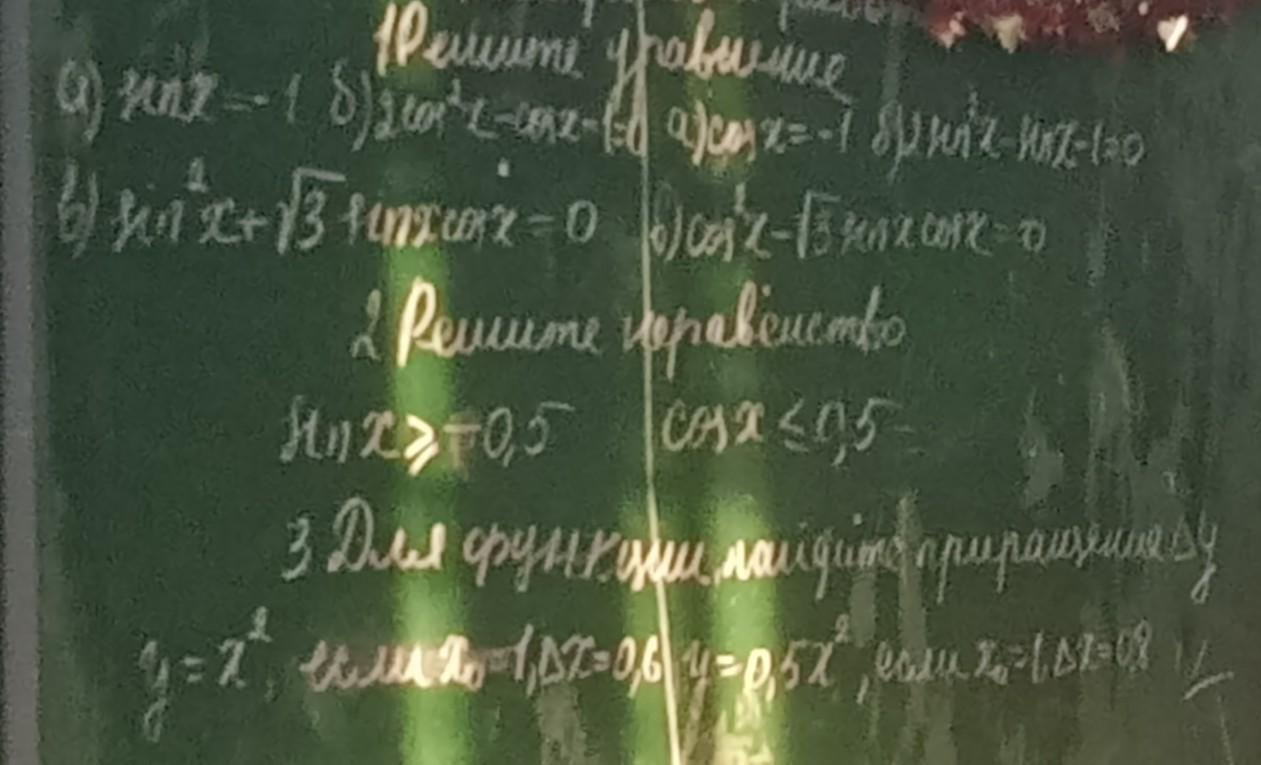 1 Решите уравнение
а) sinx = -1 б) 2cos²x - cosx - 1=0 а) cosx = -1 б) 2sin²x - sinx - 1=0
в) sin²x + √3 sinxcosx = 0 в) cos²x - √3 sinxcosx = 0
2 Решите неравенство
sinx ⩾ -0,5 cosx ≤ 0,5
3 Для функции найдите приращение Δy
y = x², если x₀=1, Δx=0,6 y = 0,5x², если x₀=1, Δx=0,8